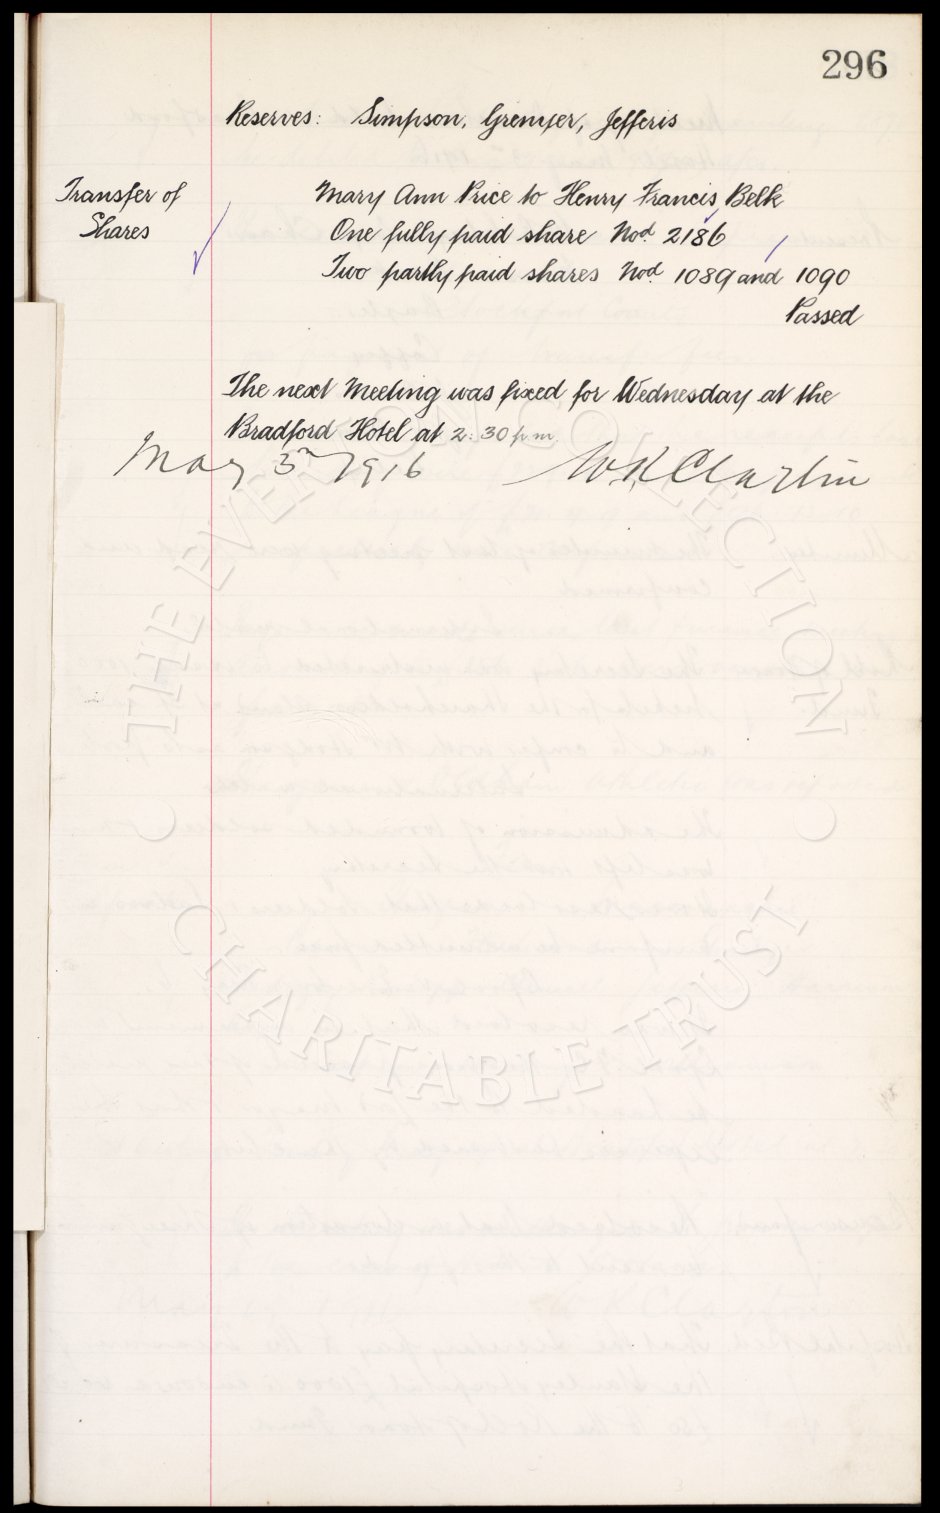 296
Reserves: Simpson, Grenyer, Jefferis
Transfer of
Shares
Mary Ann Price to Henry Francis Belk
One fully paid share Nod. 2186
Two partly paid shares Nod. 1089 and 1090
Passed
The next Meeting was fixed for Wednesday at the
Bradford Hotel at 2:30 p m
May 3rd 1916 W R Clayton
THE EVERTON COLLECTION
CHARITABLE TRUST